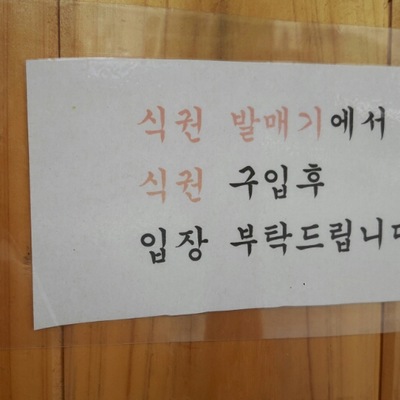 식권 발매기에서
식권 구입후
입장 부탁드립니다